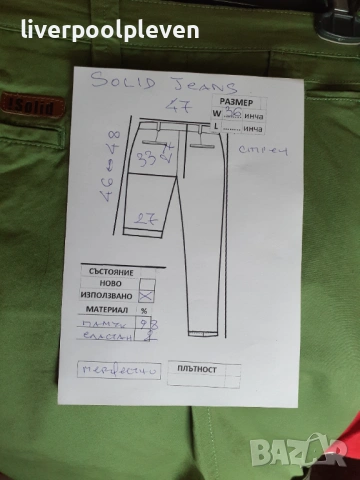 liverpoolpleven
SOLID JEANS
!Solid
47
РАЗМЕР
W 36 инча
L ........ инча
стреч
46 ↔ 48
33
24
27
СЪСТОЯНИЕ
НОВО
ИЗПОЛЗВАНО X
МАТЕРИАЛ %
памук 98
еластан 2
перфектно
ПЛЪТНОСТ
BAZAR